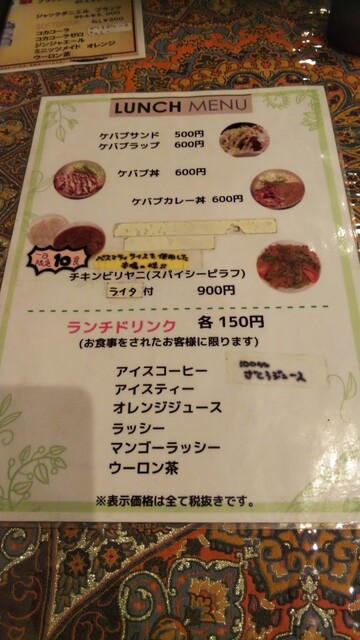 ジャックダニエル ブラック
コカコーラ
コカコーラゼロ
ジンジャエール
ミニッツメイド オレンジ
ウーロン茶
LUNCH MENU
ケバブサンド 500円
ケバブラップ 600円
ケバブ丼 600円
ケバブカレー丼 600円
バスマティライスを使用した
一日
限定10食
チキンビリヤニ(スパイシーピラフ)
ライタ付 900円
ランチドリンク 各150円
(お食事をされたお客様に限ります)
アイスコーヒー
アイスティー
オレンジジュース
ラッシー
マンゴーラッシー
ウーロン茶
100%
ざくろジュース
※表示価格は全て税抜きです。